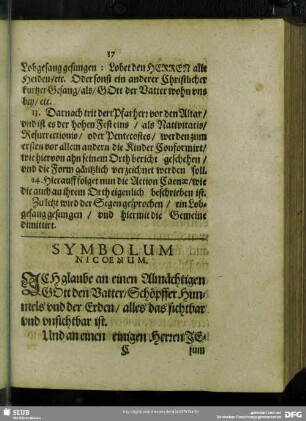 17
Lobgesang gesungen : Lobet den HERREN alle
Heiden/etc. Oder sonst ein anderer Christlicher
kurtzer Gesang/als/ GOtt der Vatter wohn vns
bey/ etc.
13. Darnach trit der Pfarherr vor den Altar/
vnd ist es der hohen Fest eins / als Nativitatis/
Resurrectionis / oder Pentecostes / werden zum
ersten vor allem andern die Kinder Confirmirt/
wie hiervon an seinem Orth bericht geschehen /
vnd die Form gäntzlich verzeichnet werden soll.
14. Hierauff folget nun die Action Cœnæ/ wie
die auch an ihrem Orth eigenlich beschrieben ist.
Zu letzt wird der Segen gesprochen / ein Lob-
gesang gesungen / vnd hiermit die Gemeine
dimittirt.
SYMBOLUM
NICOENUM.
ICH glaube an einen Allmächtigen
GOtt den Vatter/ Schöpffer Him-
mels vnd der Erden / alles das sichtbar
vnd vnsichtbar ist.
Vnd an einen einigen Herren JE-
C sum
SLUB
DFG